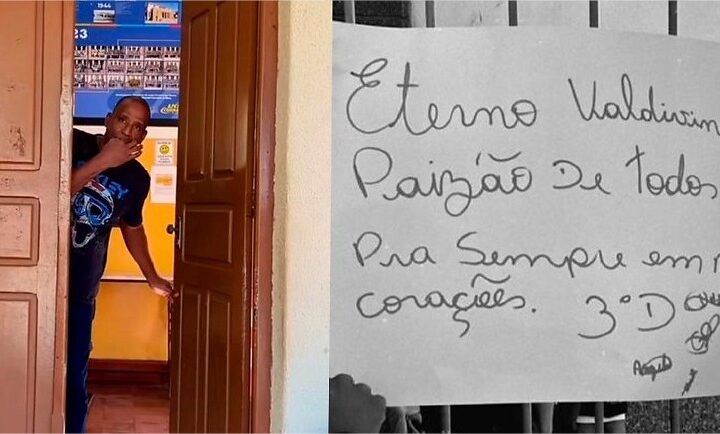 1944
23
Eterno Valdivin
Paizão De todos
Pra Sempre em n
corações. 3°D